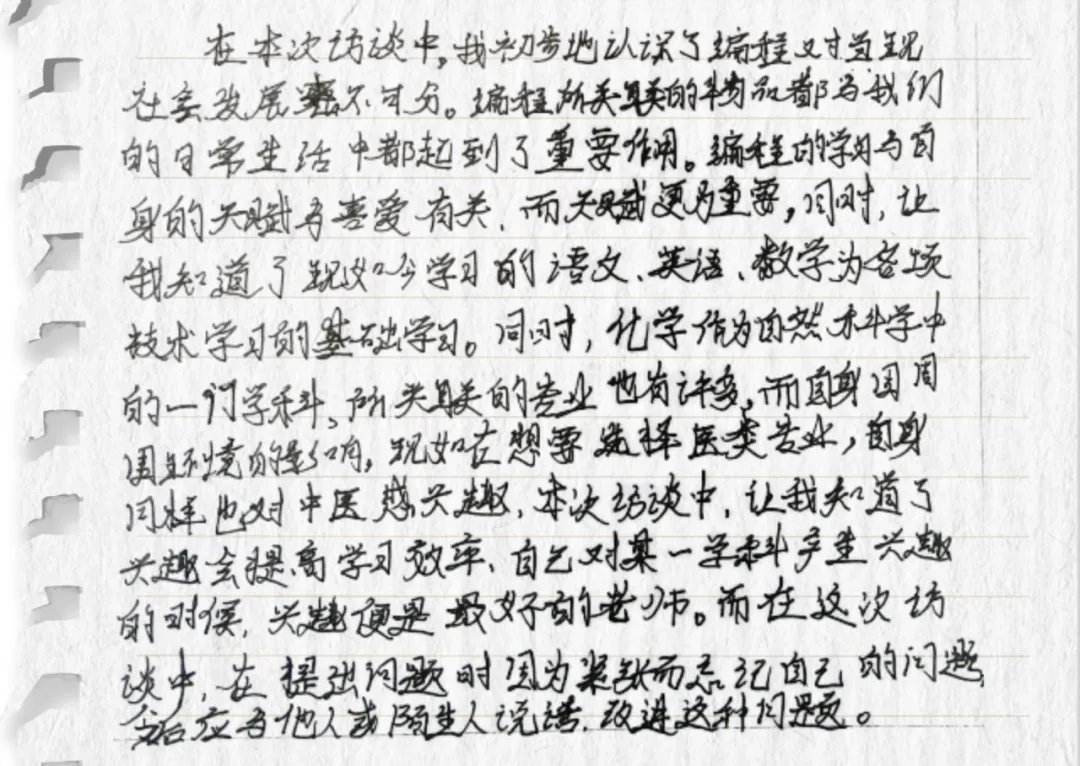 在本次访谈中,我初步地认识了编程对当现
社会发展密不可分。编程所关联的物品都与我们
的日常生活中都起到了重要作用。编程的学习与自
身的天赋与喜爱有关,而天赋更为重要,同时,让
我知道了现如今学习的语文、英语、数学为各项
技术学习的基础学习。同时,化学作为自然科学中
的一门学科,所关联的专业也有许多,而自身因周
围环境的影响,现如在想要选择医类专业,自身
同样也对中医感兴趣,本次访谈中,让我知道了
兴趣会提高学习效率,自己对某一学科产生兴趣
的时候,兴趣便是最好的老师。而在这次访
谈中,在提出问题时因为紧张而忘记自己的问题
应与他人或陌生人说话,改进这种问题。